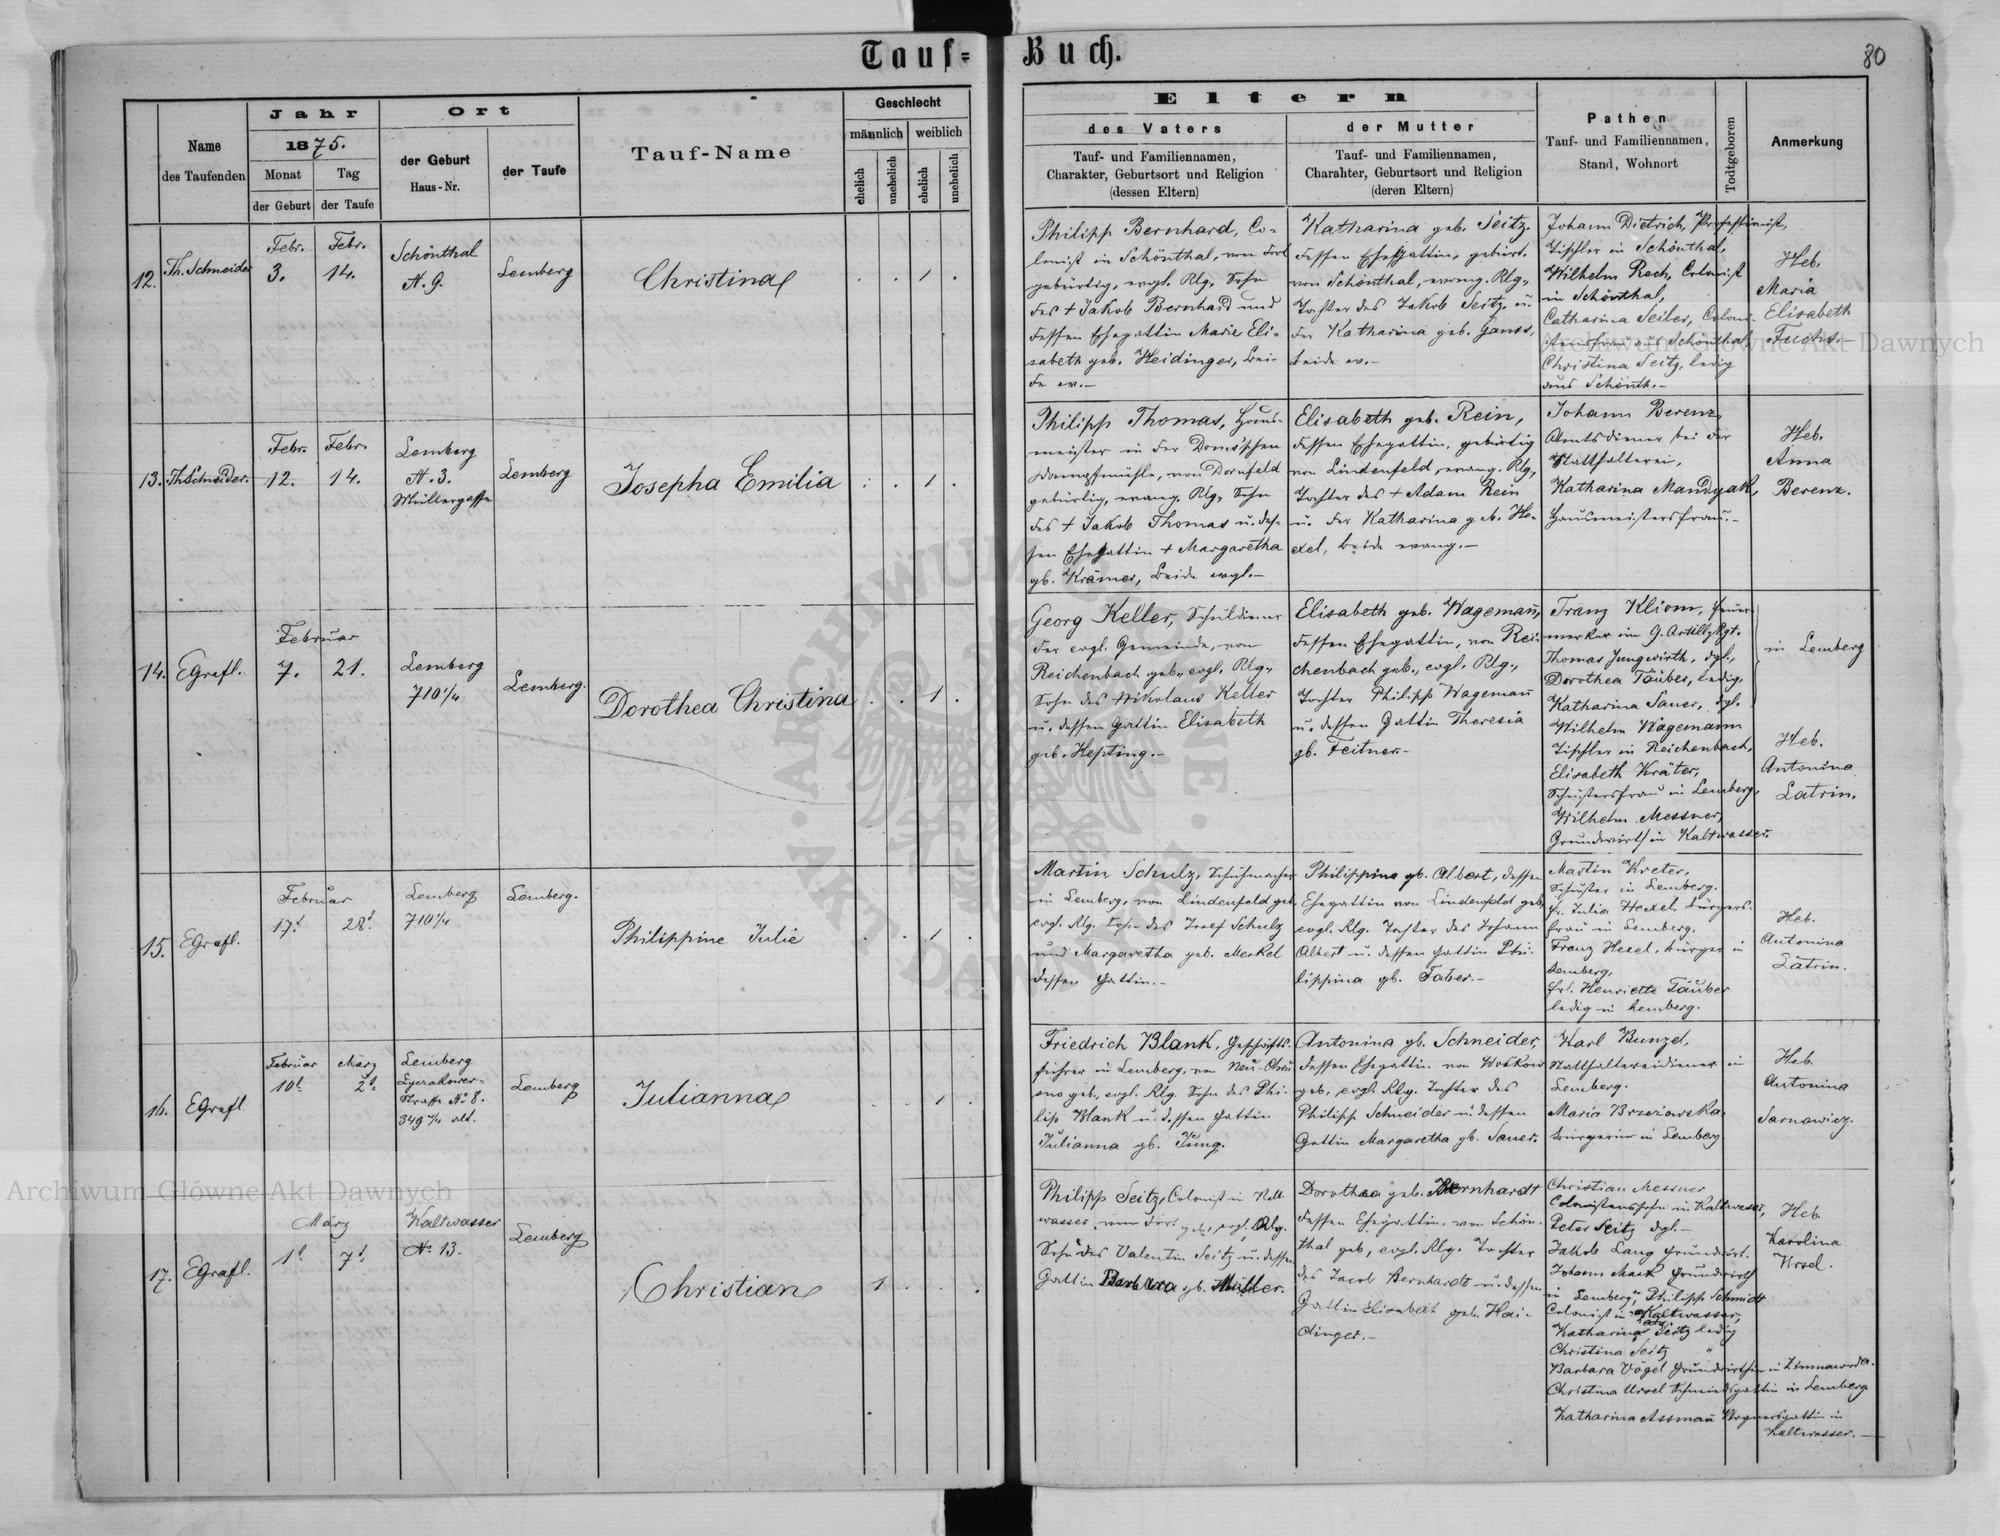 Tauf=
Buch.
80
Name
des Taufenden
Jahr
1875.
Monat
Tag
der Geburt
der Taufe
Ort
der Geburt
Haus-Nr.
der Taufe
Tauf-Name
Geschlecht
männlich
weiblich
ehelich
unehelich
ehelich
unehelich
Eltern
des Vaters
Tauf- und Familiennamen,
Charakter, Geburtsort und Religion
(dessen Eltern)
der Mutter
Tauf- und Familiennamen,
Charahter, Geburtsort und Religion
(deren Eltern)
Pathen
Tauf- und Familiennamen,
Stand, Wohnort
Todtgeboren
Anmerkung
12.
Th. Schneider
Febr.
3.
Febr.
14.
Schönthal
N. 9.
Lemberg
Christina
. . 1 .
Philipp Bernhard, Co-
lonist in Schönthal, von
gebürtig, evgl. Rlg. Sohn
des + Jakob Bernhard und
dessen Ehegattin Marie Eli-
sabeth geb. Heidinger, bei-
de ev.-
Katharina geb. Seitz,
dessen Ehegattin, gebürt.
von Schönthal, evang. Rlg.,
Tochter des Jakob Seitz u.
der Katharina geb. Ganss,
beide ev.-
Johann Dietrich, Professionist,
Tischler in Schönthal,
Wilhelm Rech, Colonist
in Schönthal,
Catharina Seiler, Coloni-
stensfrau aus Schönthal,
Christina Seitz, ledig
aus Schönth.-
Heb.
Maria
Elisabeth
Fuchs.-
13.
Th. Schneider.
Febr.
12.
Febr.
14.
Lemberg
N. 3.
Müllergasse
Lemberg
Josepha Emilia
: . 1 .
Philipp Thomas, Haus-
meister in der Doms'schen
Dampfmühle, von Dornfeld
gebürtig, evang. Rlg., Sohn
des + Jakob Thomas u. des-
sen Ehegattin + Margaretha
gb. Krämer, beide evgl.-
Elisabeth geb. Rein,
dessen Ehegattin, gebürtig
von Lindenfeld, evang. Rlg.,
Tochter des + Adam Rein
u. der Katharina geb. He-
exel, beide evang.-
Johann Berenz,
Amtsdiener bei der
Statthalterei,
Katharina Mandyak,
Hausmeistersfrau.-
Heb.
Anna
Berenz.
14.
EGrafl.
Februar
7.
21.
Lemberg
710¼
Lemberg.
Dorothea Christina
. . 1 .
Georg Keller, Schuldiener
der evgl. Gemeinde, von
Reichenbach geb., evgl. Rlg.,
Sohn des Nikolaus Keller
u. dessen Gattin Elisabeth
geb. Hepting.-
Elisabeth geb. Wagemañ,
dessen Ehegattin, von Rei-
chenbach geb., evgl. Rlg.,
Tochter Philipp Wagemañ
u. dessen Gattin Theresia
gb. Feitner.-
Franz Kliom, Feuer-
werker im 9. Artill. Rgt.
Thomas Jungwirth, dgl.,
Dorothea Täuber, ledig.
Katharina Sauer, dgl.
Wilhelm Wagemann
Tischler in Reichenbach,
Elisabeth Kräter,
Schustersfrau in Lemberg,
Wilhelm Messner,
Grundwirth in Kaltwasser.
in Lemberg
Heb.
Antonina
Latrin.
15.
EGrafl.
Februar
17.
28.
Lemberg
710¼
Lemberg.
Philippine Julie
. . 1 .
Martin Schulz, Schuhmacher
in Lemberg, von Lindenfeld geb.
evgl. Rlg. Sohn des Josef Schulz
und Margaretha geb. Merkel
dessen Gattin.-
Philippine gb. Albert, dessen
Ehegattin von Lindenfeld geb.
evgl. Rlg. Tochter des Johann
Albert u. dessen Gattin Phi-
lippina gb. Faber.-
Martin Kreter,
Schuster in Lemberg.
Fr. Julia Hexel, bürgers-
frau in Lemberg.
Franz Hexel, bürger in
Lemberg,
Frl. Henriette Täuber
ledig in Lemberg.
Heb.
Antonina
Latrin.
16.
EGrafl
Februar
10
März
2
Lemberg
Lyczakower-
Strasse No 8.
349¼ alt.
Lemberg
Julianna
. . 1 .
Friedrich Blank, Geschäfts-
führer in Lemberg, von Neu-
geb., evgl. Rlg. Sohn des Phi-
lipp Blank u. dessen Gattin
Julianna gb. Jung.
Antonina gb. Schneider,
dessen Ehegattin von
geb., evgl. Rlg. Tochter des
Philipp Schneider u. dessen
Gattin Margaretha gb. Sauer.
Karl Bunzel,
Statthaltereidiener in
Lemberg.
Maria Brzezowska
bürgerin in Lemberg
Heb.
Antonina
Sarnawicz.
17.
EGrafl.
März
1
7
Kaltwasser
No 13.
Lemberg
Christian
1 . . .
Philipp Seitz, Colonist in Kalt-
wasser, von geb., evgl. Rlg.
Sohn des Valentin Seitz u. dessen
Gattin Barbara gb. Müller.
Dorothea geb. Bernhardt
dessen Ehegattin, von Schön-
thal geb., evgl. Rlg. Tochter
des Jacob Bernhardt u. dessen
Gattin Elisabeth geb. Hai-
dinger.-
Christian Messner
Colonistenssohn in Kaltwasser,
Peter Seitz dgl.-
Jakob Lang Grundwirt.
Johann Mack Grundwirth
in Lemberg, Philipp Schmidt
Colonist in Kaltwasser,
Katharina Seitz ledig
Christina Seitz "
Barbara Vögel Grundwirthin in Zimnawoda.
Christina Ursel Schmiedsgattin in Lemberg
Katharina Assmañ Wagnersgattin in
Kaltwasser.-
Heb.
Karolina
Ursel.
Archiwum Główne Akt Dawnych
Archiwum Główne Akt Dawnych
ARCHIWUM GŁÓWNE AKT DAWNYCH